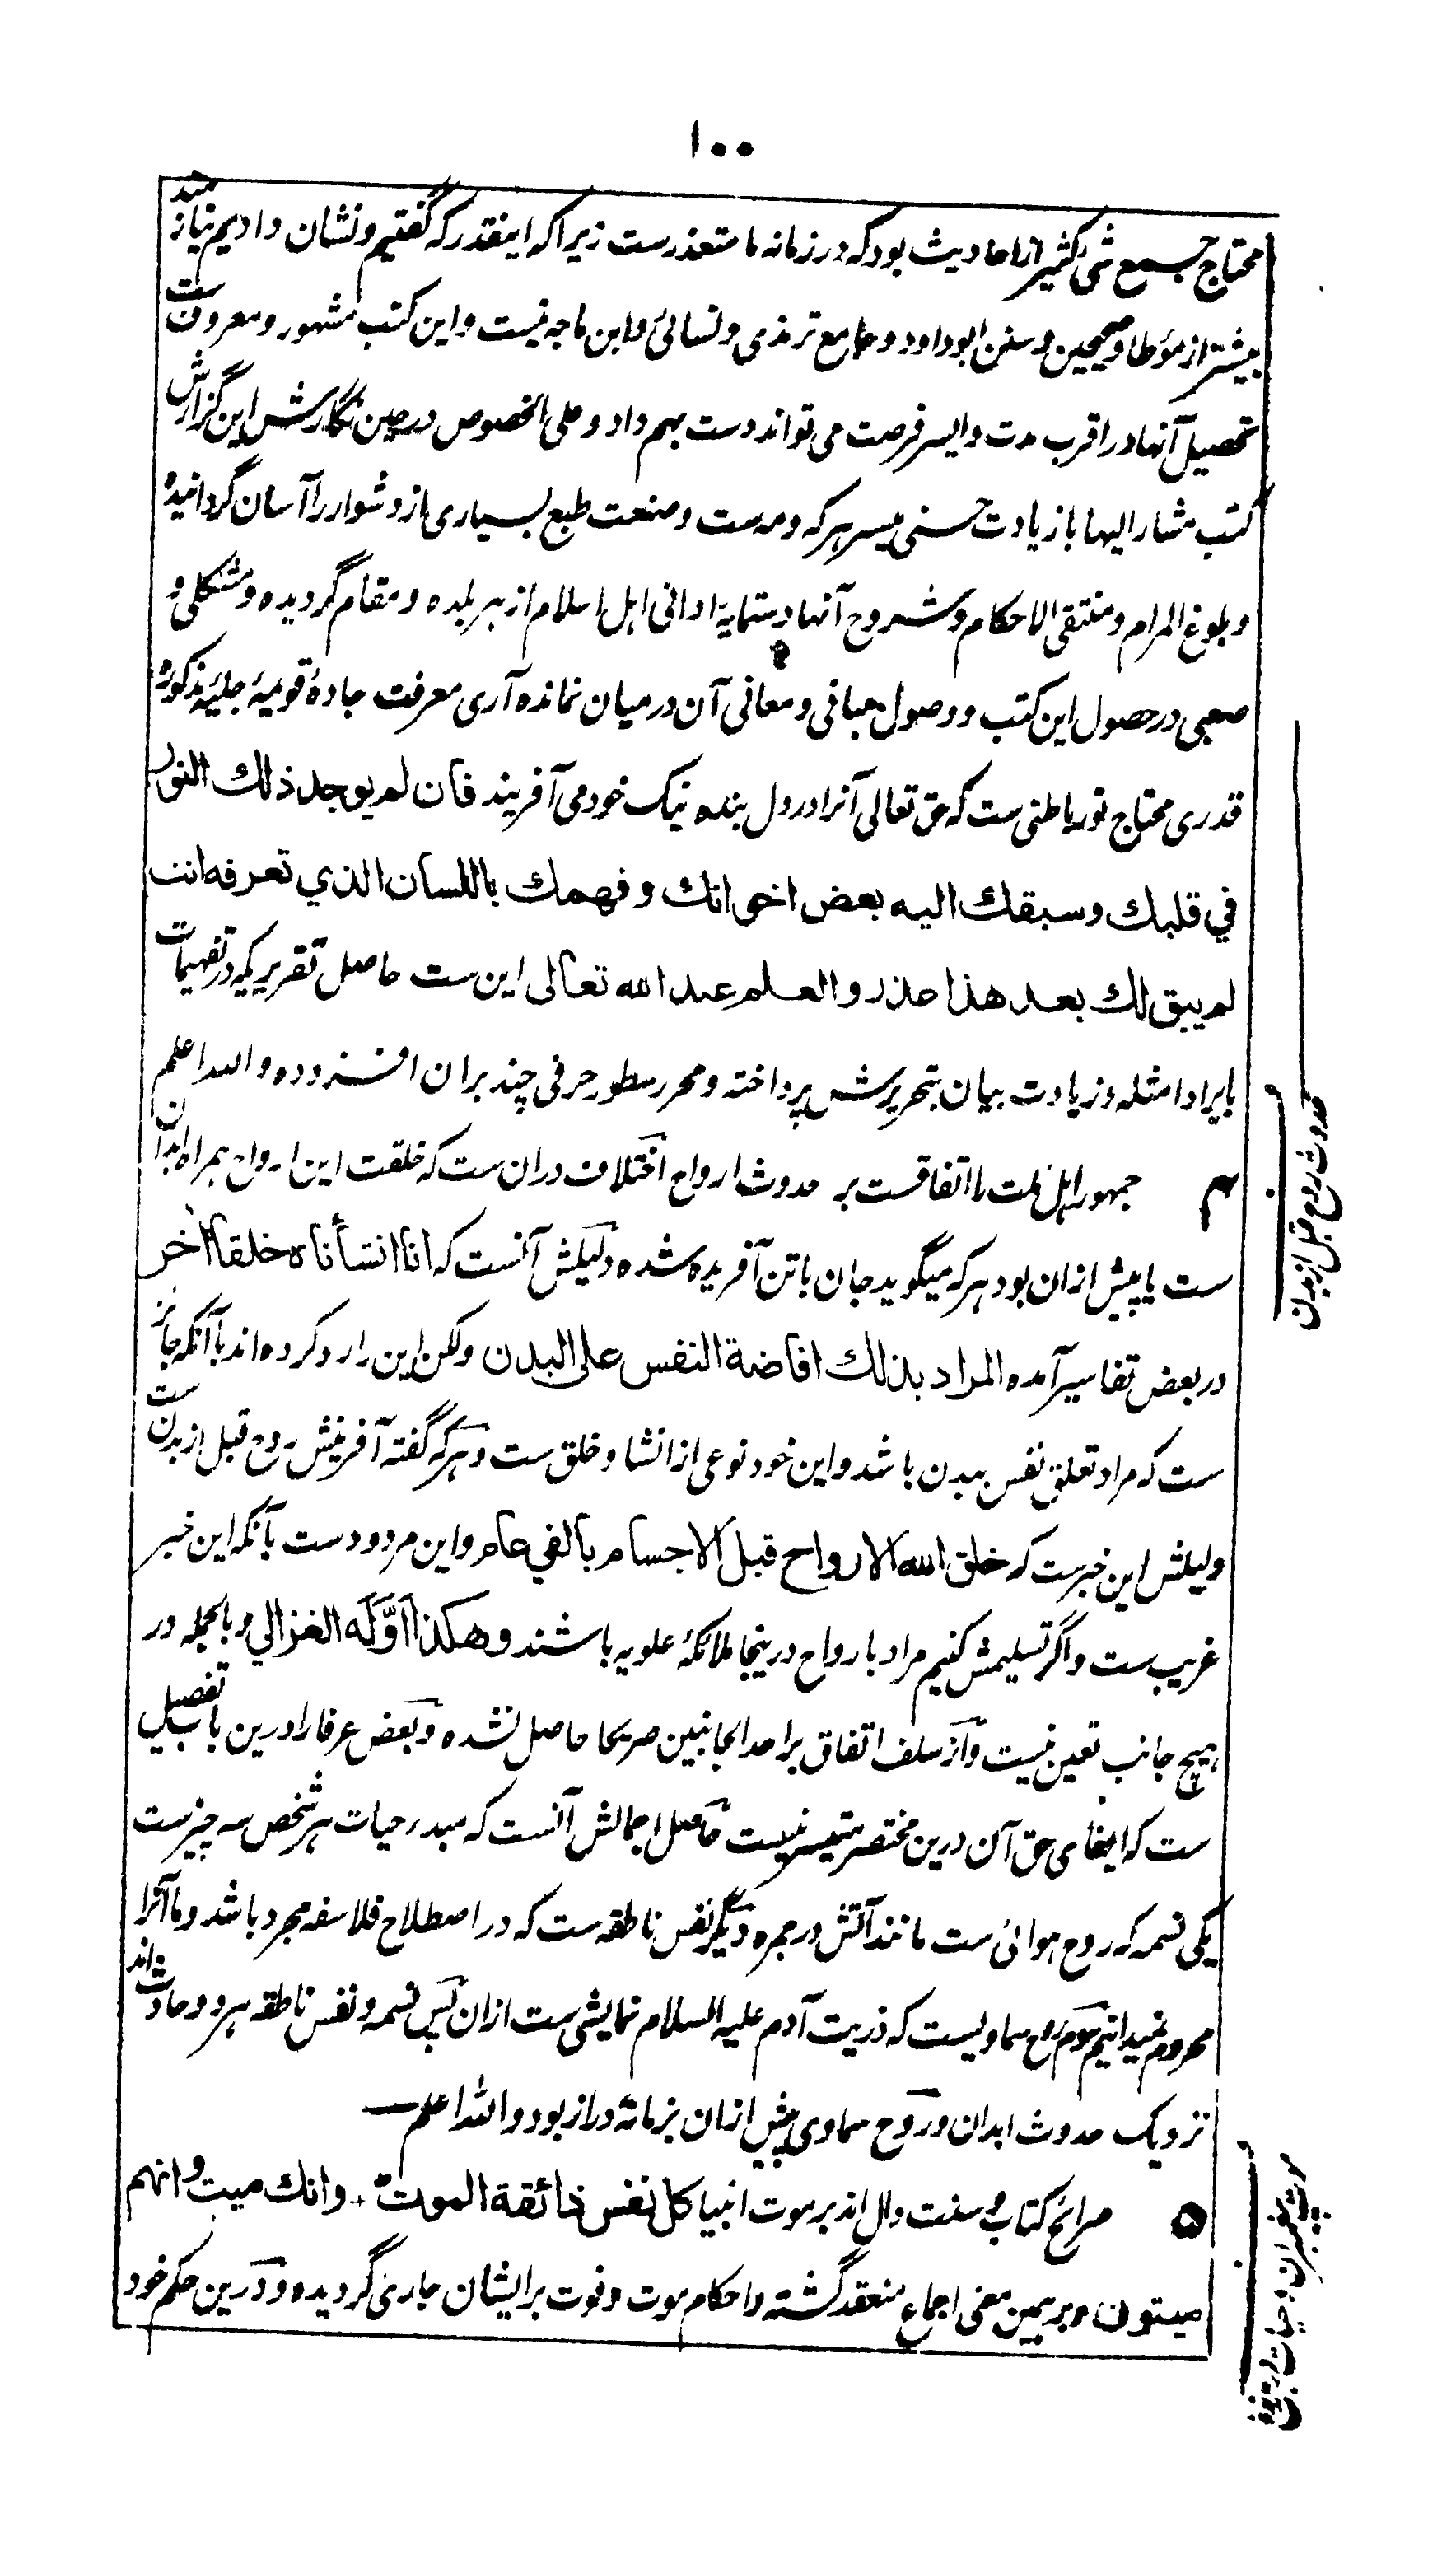 ۱۰۰
محتاج جمع شیٔ کثیر از احادیث بود که در زمانه ما متعذر ست زیرا که اینقدر که گفتیم و نشان دادیم نیازمند
بیشتر از مؤطا و صحیحین و سنن ابوداود و جامع ترمذی و نسائی و ابن ماجه نیست و این کتب مشهور و معروف ست
تحصیل آنها در اقرب مدت و ایسر فرصت می تواند دست بهم داد و علی الخصوص در حین نگارش این گزارش
کتب مشار الیها با زیادت حسنی میسر هر که و مه ست و صنعت طبع بسیاری از دشوار را آسان گردانیده
و بلوغ المرام و منتقی الاحکام و شروح آنها دستمایهٔ ادانی اهل اسلام از هر بلده و مقام گردیده و مشکلی و
صعبی در حصول این کتب و وصول مبانی و معانی آن در میان نمانده آری معرفت جادهٔ قویمهٔ جلیهٔ مذکوره
قدری محتاج نور باطنی ست که حق تعالی آنرا در دل بنده نیک خود می آفریند فان لم يوجد ذلك النور
في قلبك وسبقك اليه بعض اخوانك وفهمك باللسان الذي تعرفه انت
لم يبق لك بعد هذا عذر والعلم عند الله تعالى این ست حاصل تقریریکه در تفهیمات
بایراد امثله و زیادت بیان بتحریرش پرداخته و محرر سطور حرفی چند بران افزوده و الله اعلم
۴ جمهور اهل ملت را اتفاقست بر حدوث ارواح اختلاف دران ست که خلقت این ارواح همراه ابدان
ست یا پیش ازان بود هرکه میگوید جان با تن آفریده شده دلیلش آنست که انا انشأناه خلقا اخر
در بعض تفاسیر آمده المراد بذلك افاضة النفس على البدن ولکن این را رد کرده اند با آنکه جائز
ست که مراد تعلق نفس ببدن باشد و این خود نوعی از انشا و خلق ست و هرکه گفته آفرینش روح قبل از بدن ست
دلیلش این خبرست که خلق الله الارواح قبل الاجسام بالفي عام و این مردودست بآنکه این خبر
غریب ست و اگر تسلیمش کنیم مراد بارواح درینجا ملائکهٔ علویه باشند وهكذا اوّله الغزالي و بالجمله در
هیچ جانب تعین نیست و از سلف اتفاق بر احد الجانبین صریحا حاصل نشده و بعض عرفا را درین باب تفصیل
ست که ایفای حق آن درین مختصر متیسر نیست حاصل اجمالش آنست که مبدء حیات هر شخص سه چیزست
یکی نسمه که روح هوائی ست مانند آتش در جمره دیگر نفس ناطقه ست که در اصطلاح فلاسفه مجرد باشد و ما آنرا
محروم نمیدانیم سوم روح سماویست که ذریت آدم علیه السلام نمایشی ست ازان پس نسمه و نفس ناطقه هر دو حادث اند
نزدیک حدوث ابدان و روح سماوی پیش ازان بزمانهٔ دراز بود و الله اعلم
۵ صرائح کتاب و سنت دال اند بر موت انبیا كل نفس ذائقة الموت و انك ميت وانهم
ميتون و بر همین معنی اجماع منعقد گشته و احکام موت و فوت بر ایشان جاری گردیده و درین حکم خود
حدوث روح قبل از بدن
موت پیغمبران و حیات